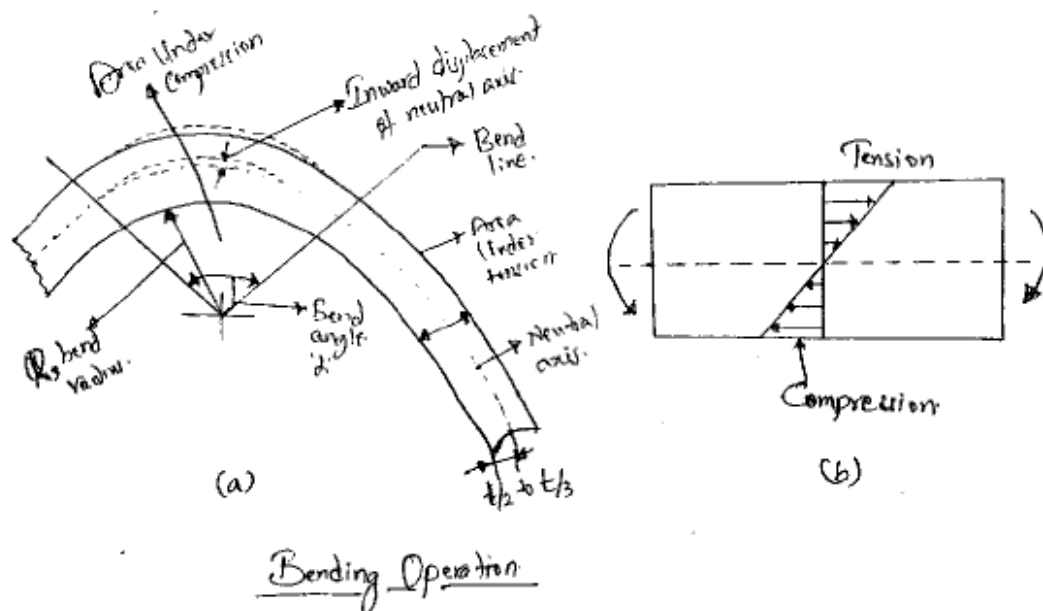 Area Under
Compression
Inward displacement
of neutral axis.
Bend
line.
Area
Under
tension
Neutral
axis.
Bend
angle
α.
R, bend
radius.
t/2 to t/3
(a)
Tension
Compression
(b)
Bending Operation